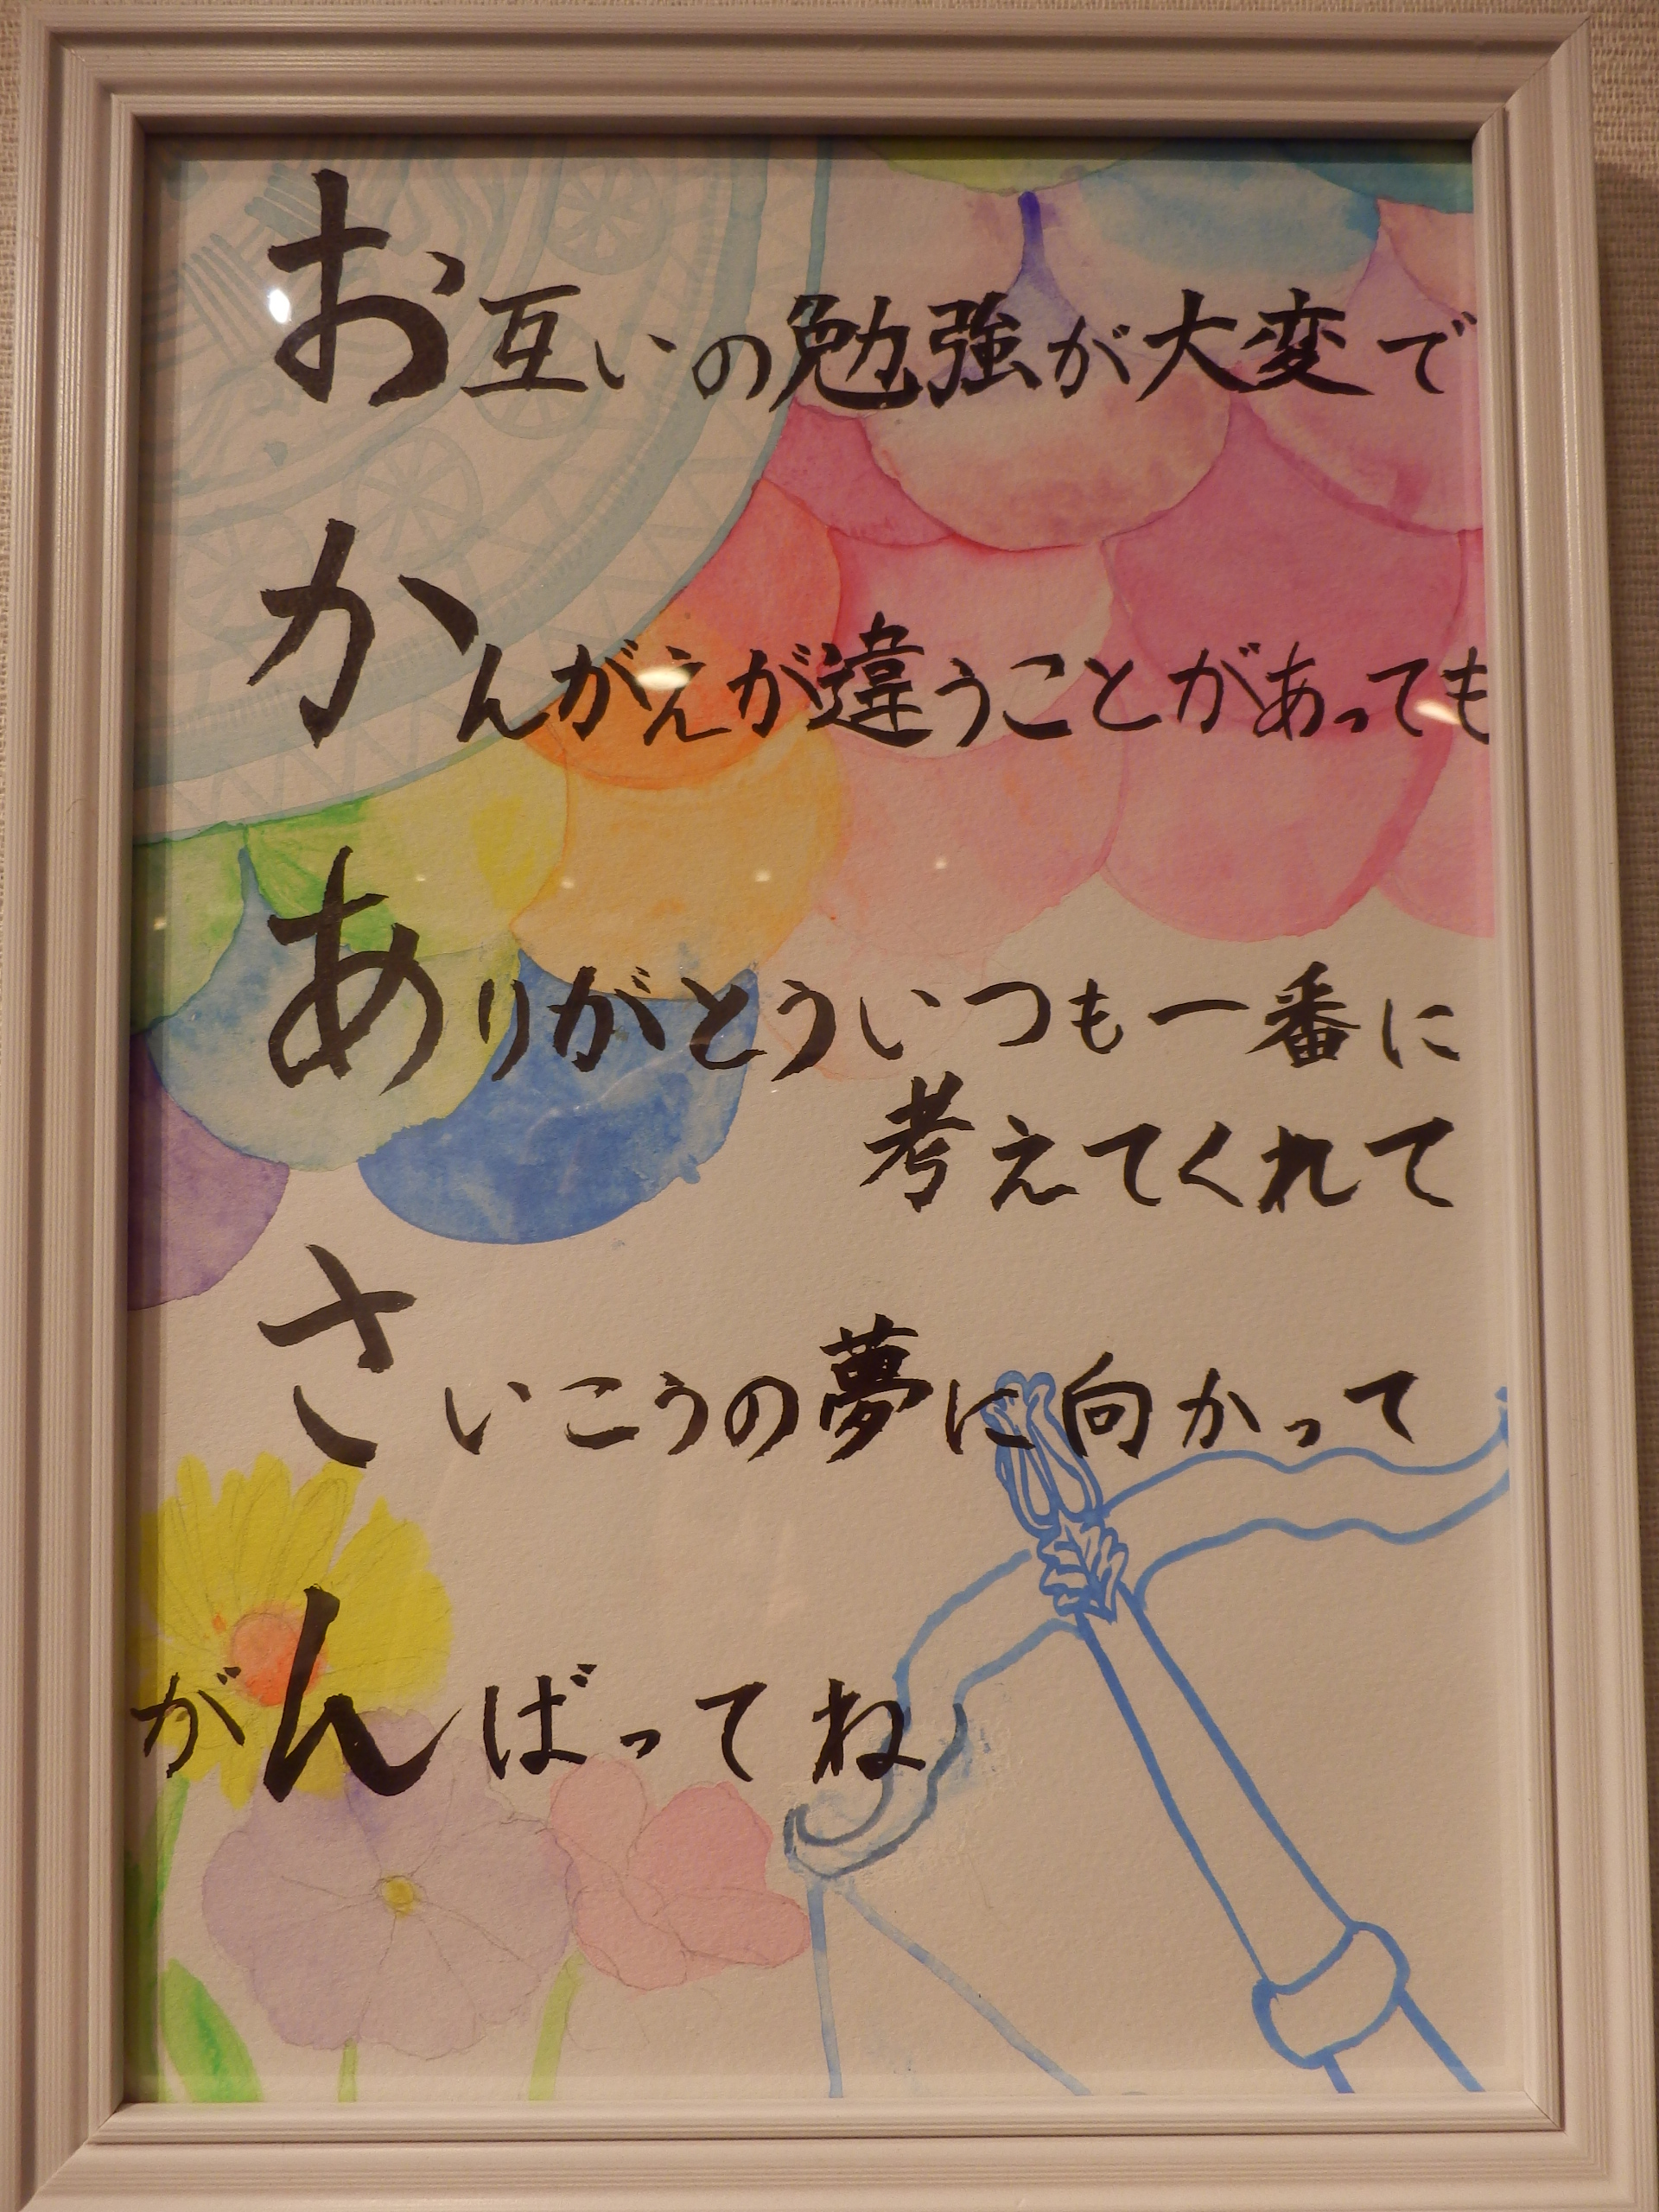 お互いの勉強が大変で
かんがえが違うことがあっても
ありがとういつも一番に
考えてくれて
さいこうの夢に向かって
がんばってね